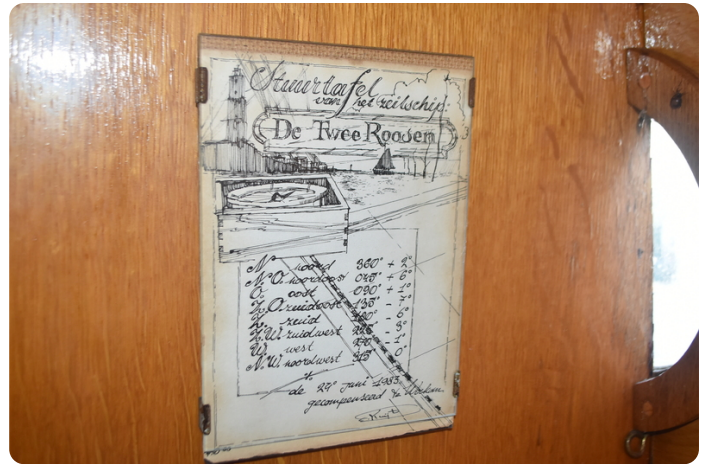 Stuurtafel
van het zeilschip:
De Twee Roosen
N. noord 360° + 2°
N.O. noordoost 045° + 6°
O. oost 090° + 1°
Z.O. zuidoost 135° - 7°
Z. zuid 180° - 6°
Z.W. zuidwest 225° - 3°
W. west 270° - 1°
N.W. noordwest 315° 0°
de 29e juni 1983
gecompenseerd te